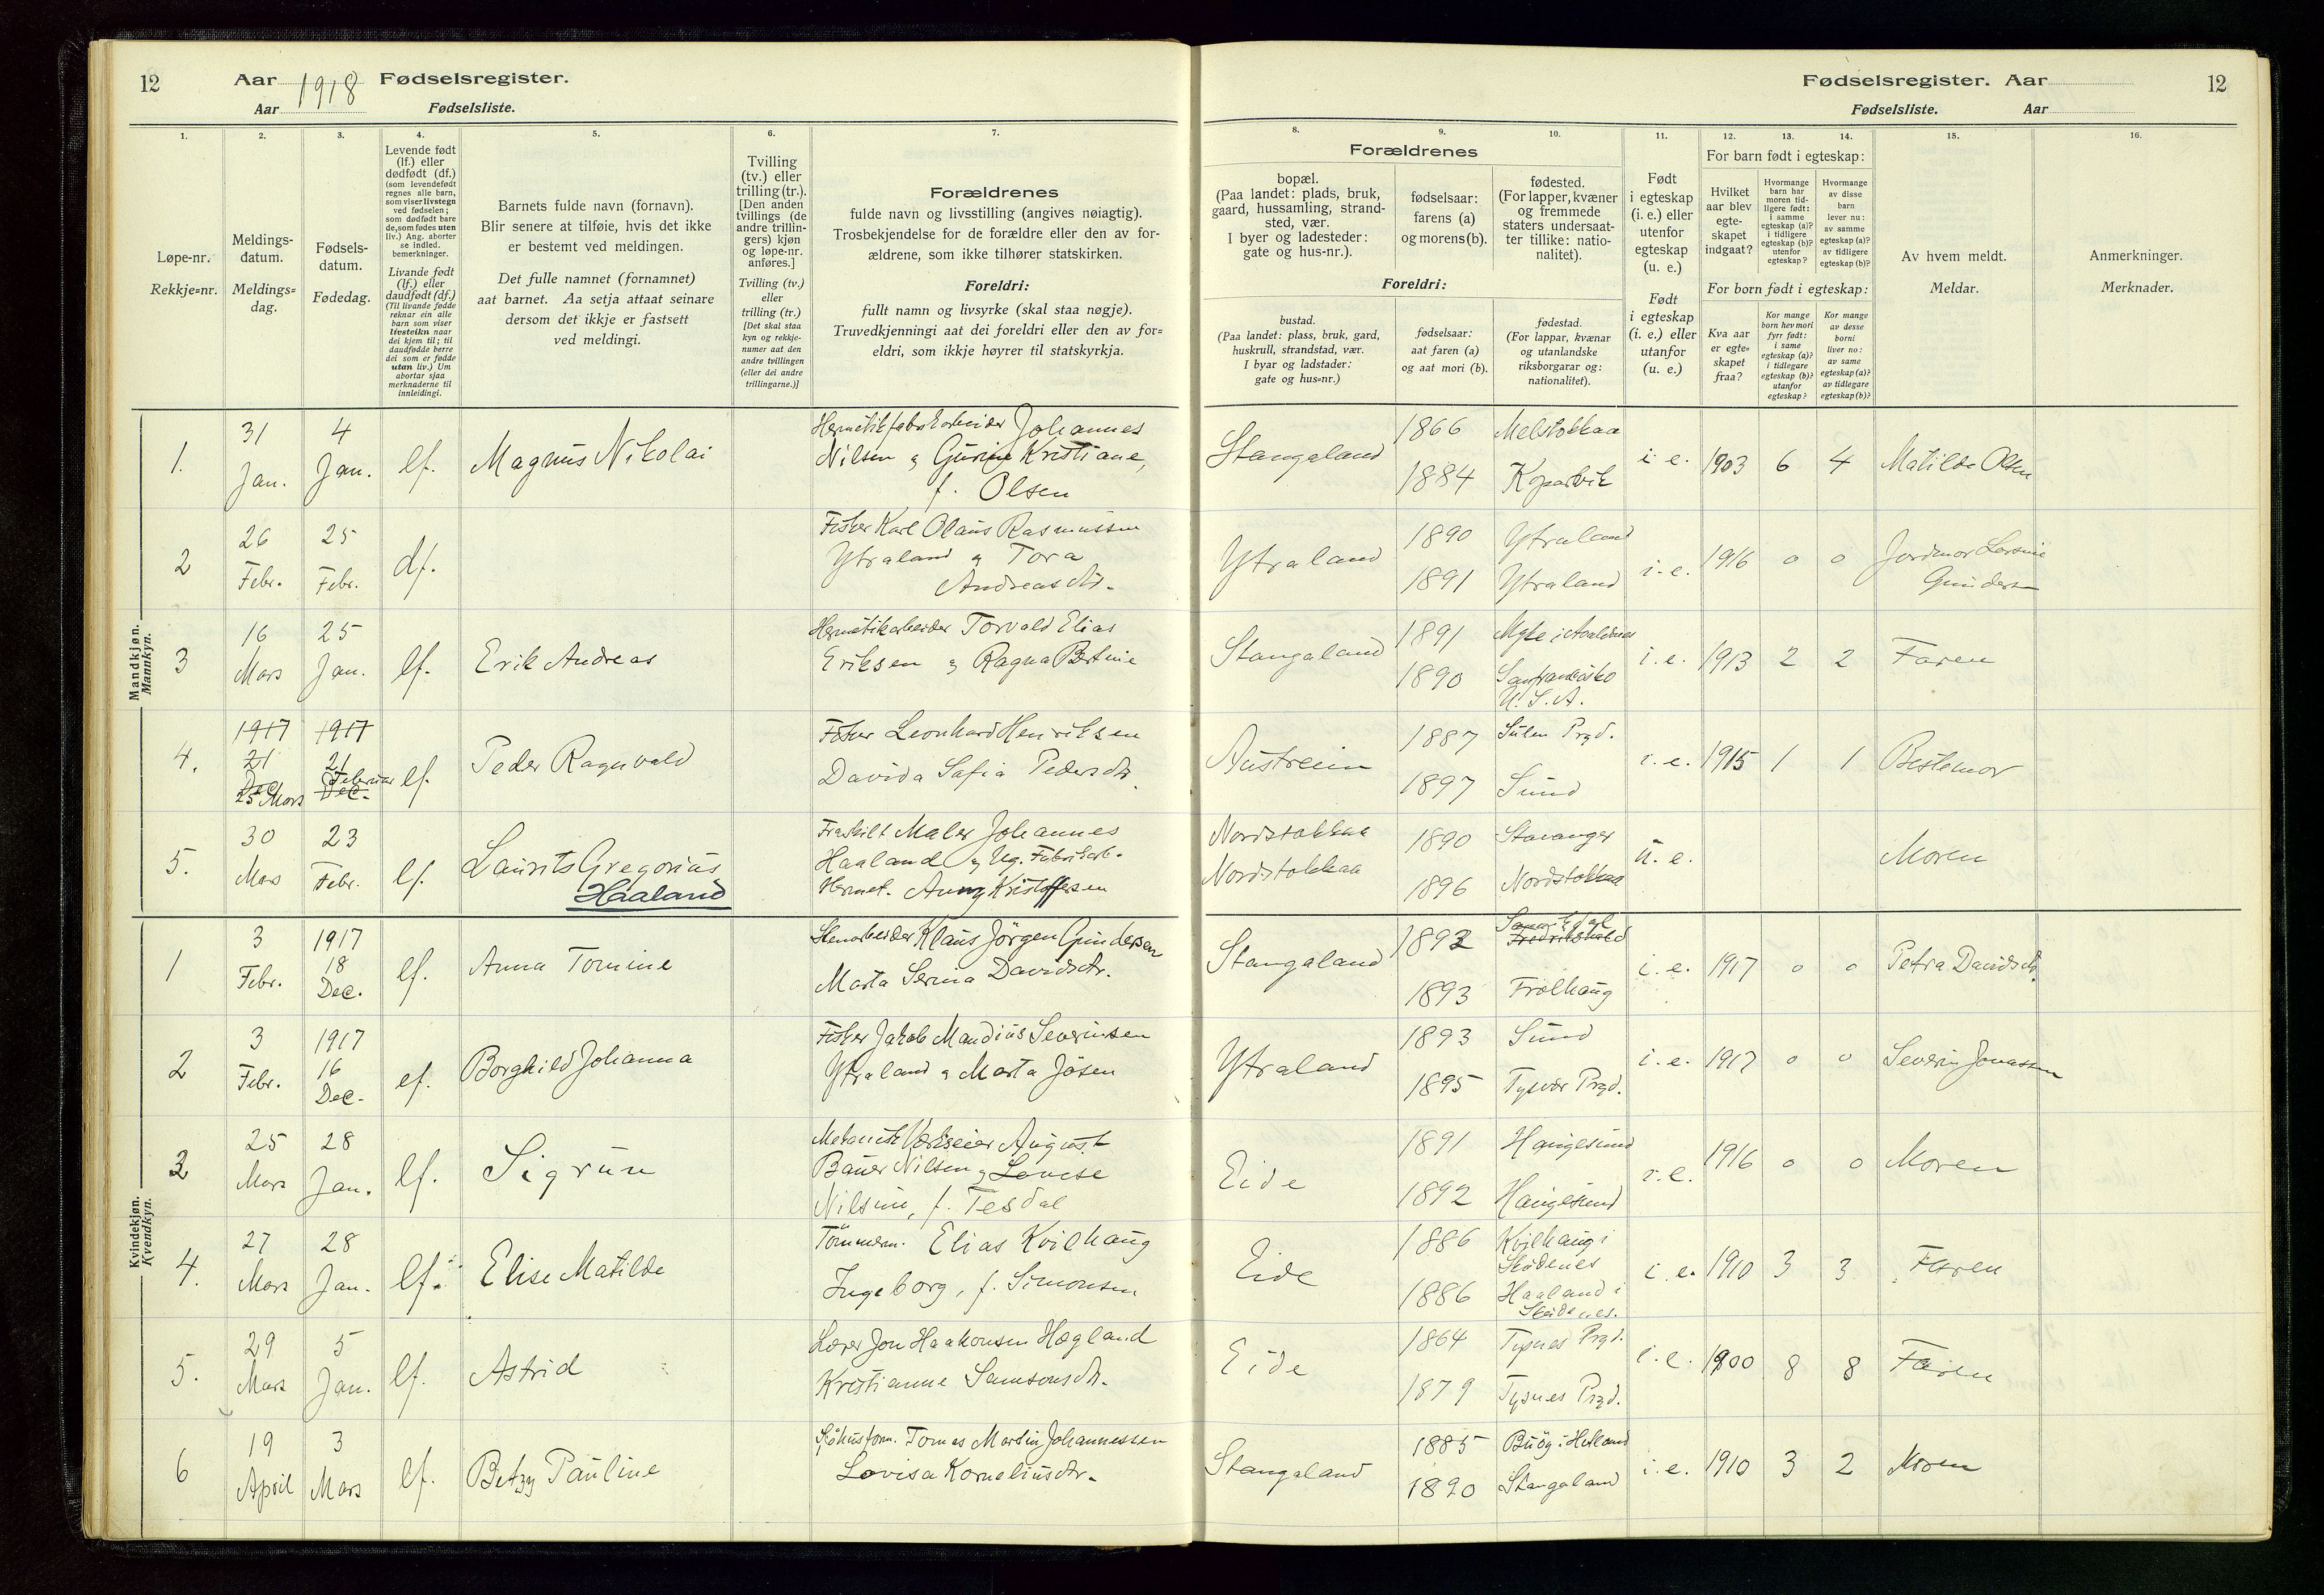 12 Aar 1918 Fødselsregister.
Aar Fødselsliste.
Fødselsregister. Aar 12
Fødselsliste. Aar
1. 2. 3. 4. 5. 6. 7.
Løpe-nr.
Rekkje=nr.
Meldings-
datum.
Meldings=
dag.
Fødsels-
datum.
Fødedag.
Levende født
(lf.) eller
dødfødt (df.)
(som levendefødt
regnes alle barn,
som viser livstegn
ved fødselen;
som dødfødt bare
de, som fødes uten
liv.) Ang. aborter
se indled.
bemerkninger.
Livande født
(lf.) eller
daudfødt (df.)
(Til livande fødde
reknar ein alle
barn som viser
livsteikn naar
dei kjem til; til
daudfødde berre
dei som er fødde
utan liv.) Um
abortar sjaa
merknaderne til
innleidingi.
Barnets fulde navn (fornavn).
Blir senere at tilføie, hvis det ikke
er bestemt ved meldingen.
Det fulle namnet (fornamnet)
aat barnet. Aa setja attaat seinare
dersom det ikkje er fastsett
ved meldingi.
Tvilling
(tv.) eller
trilling (tr.).
[Den anden
tvillings (de
andre trillin-
gers) kjøn
og løpe-nr.
anføres.]
Tvilling (tv.)
eller
trilling (tr.)
[Det skal staa
kyn og rekkje-
numer aat den
andre tvillingen
(eller dei andre
trillingarne.)]
Forældrenes
fulde navn og livsstilling (angives nøiagtig).
Trosbekjendelse for de forældre eller den av for-
ældrene, som ikke tilhører statskirken.
Foreldri:
fullt namn og livsyrke (skal staa nøgje).
Truvedkjenningi aat dei foreldri eller den av for=
eldri, som ikkje høyrer til statskyrkja.
8. 9. 10. 11. 12. 13. 14. 15. 16.
Forældrenes
bopæl.
(Paa landet: plads, bruk,
gaard, hussamling, strand-
sted, vær.
I byer og ladesteder:
gate og hus-nr.).
fødselsaar:
farens (a)
og morens (b).
fødested.
(For lapper, kvæner
og fremmede
staters undersaat-
ter tillike: natio-
nalitet).
Foreldri:
bustad.
(Paa landet: plass, bruk, gard,
huskrull, strandstad, vær.
I byar og ladstader:
gate og hus=nr.)
fødselsaar:
aat faren (a)
og aat mori (b).
fødestad.
(For lappar, kvænar
og utanlandske
riksborgarar og:
nationalitet).
Født
i egteskap
(i. e.) eller
utenfor
egteskap
(u. e.)
Født
i egteskap
(i. e.) eller
utanfor
(u. e.)
For barn født i egteskap:
Hvilket
aar blev
egte-
skapet
indgaat?
Hvormange
barn har
moren tid-
ligere født:
i samme
egteskap (a)?
i tidligere
egteskap (b)?
utenfor
egteskap?
Hvormange
av disse
barn
lever nu:
av samme
egteskap (a)?
av tidligere
egteskap (b)?
For born født i egteskap:
Kva aar
er egte=
skapet
fraa?
Kor mange
born hev mori
fyrr født:
i same
egteskap (a)?
i tidlegare
egteskap (b)?
utanfor
egteskap?
Kor mange
av desse
borni
liver no:
av same
egteskap (a)?
av tidlegare
egteskap (b)?
Av hvem meldt.
Meldar.
Anmerkninger.
Merknader.
Mandkjøn.
Mannkyn.
1. 31 Jan. 4 Jan. lf. Magnus Nikolai
Hermetikfabrikarbeider Johannes
Nilsen og Gurine Kristiane,
f. Olsen
Stangaland 1866 Melstokkaa
1884 Kopervik
i. e. 1903 6 4 Matilde Olsen
2 26 Febr. 25 Febr. df.
Fisker Karl Olaus Rasmussen
Ytraland og Tora
Andreasdtr.
Ytraland 1890 Ytraland
1891 Ytraland
i. e. 1916 0 0 Jordmor Lovise
Gundersen
3 16 Mars 25 Jan. lf. Erik Andreas
Hermetikarbeider Torvald Elias
Eriksen og Ragna Bertine
Stangaland 1891 Myke i Avaldsnes
1890 Sanfrancisko
U. S. A.
i. e. 1913 2 2 Faren
4. 1917 21 Dec 25 Mars 1917 21 Februar Dec. lf. Peder Ragnvald
Fisker Leonhard Henriksen
Davida Safia Pedersdtr.
Austreim 1887 Sulen Prgd.
1897 Sund
i. e. 1915 1 1 Bestemor
5. 30 Mars 23 Febr. lf. Laurits Gregorius
Haaland
Fraskilt Maler Johannes
Haaland og Ug. Fabrikarb.
Hermet. Anny Kristoffersen
Nordstokkaa 1890 Stavanger
Nordstokkaa 1896 Nordstokkaa
u. e. Moren
Kvindekjøn.
Kvendkyn.
1 3 Febr. 1917 18 Dec. lf. Anna Tomine
Stenarbeider Klaus Jörgen Gundersen
Marta Serina Davidsdtr.
Stangaland 1892 Fredrikshald
1893 Frølhaug
i. e. 1917 0 0 Petra Davidsdtr.
2 3 Febr. 1917 16 Dec. lf. Borghild Johanna
Fisker Jakob Mandius Severinsen
Ytraland og Marta Jösen
Ytraland 1893 Sund
1895 Tysvær Prgd.
i. e. 1917 0 0 Severin Jonassen
3 25 Mars 28 Jan. lf. Sigrun
Mekanisk Verkseier August
Bauer Nilsen og Lovise
Nilsine, f. Tesdal
Eide 1891 Haugesund
1892 Haugesund
i. e. 1916 0 0 Moren
4. 27 Mars 28 Jan. lf. Elise Matilde
Tömmerm. Elias Kvilhaug
Ingeborg, f. Simonsen
Eide 1886 Kvilhaug i
Skudenes
1886 Haaland i
Skudenes.
i. e. 1910 3 3 Faren
5. 29 Mars 5 Jan. lf. Astrid
Lærer Jon Haakonsen Hægland
Kristianne Samsonsdtr.
Eide 1864 Tysnes Prgd.
1879 Tysnes Prgd.
i. e. 1900 8 8 Faren
6 19 April 3 Mars lf. Betzy Pauline
Sjöhusform. Tomas Martin Johannessen
Lovisa Korneliusdtr.
Stangaland 1885 Buöy i Hetland
1890 Stangaland
i. e. 1910 3 2 Moren